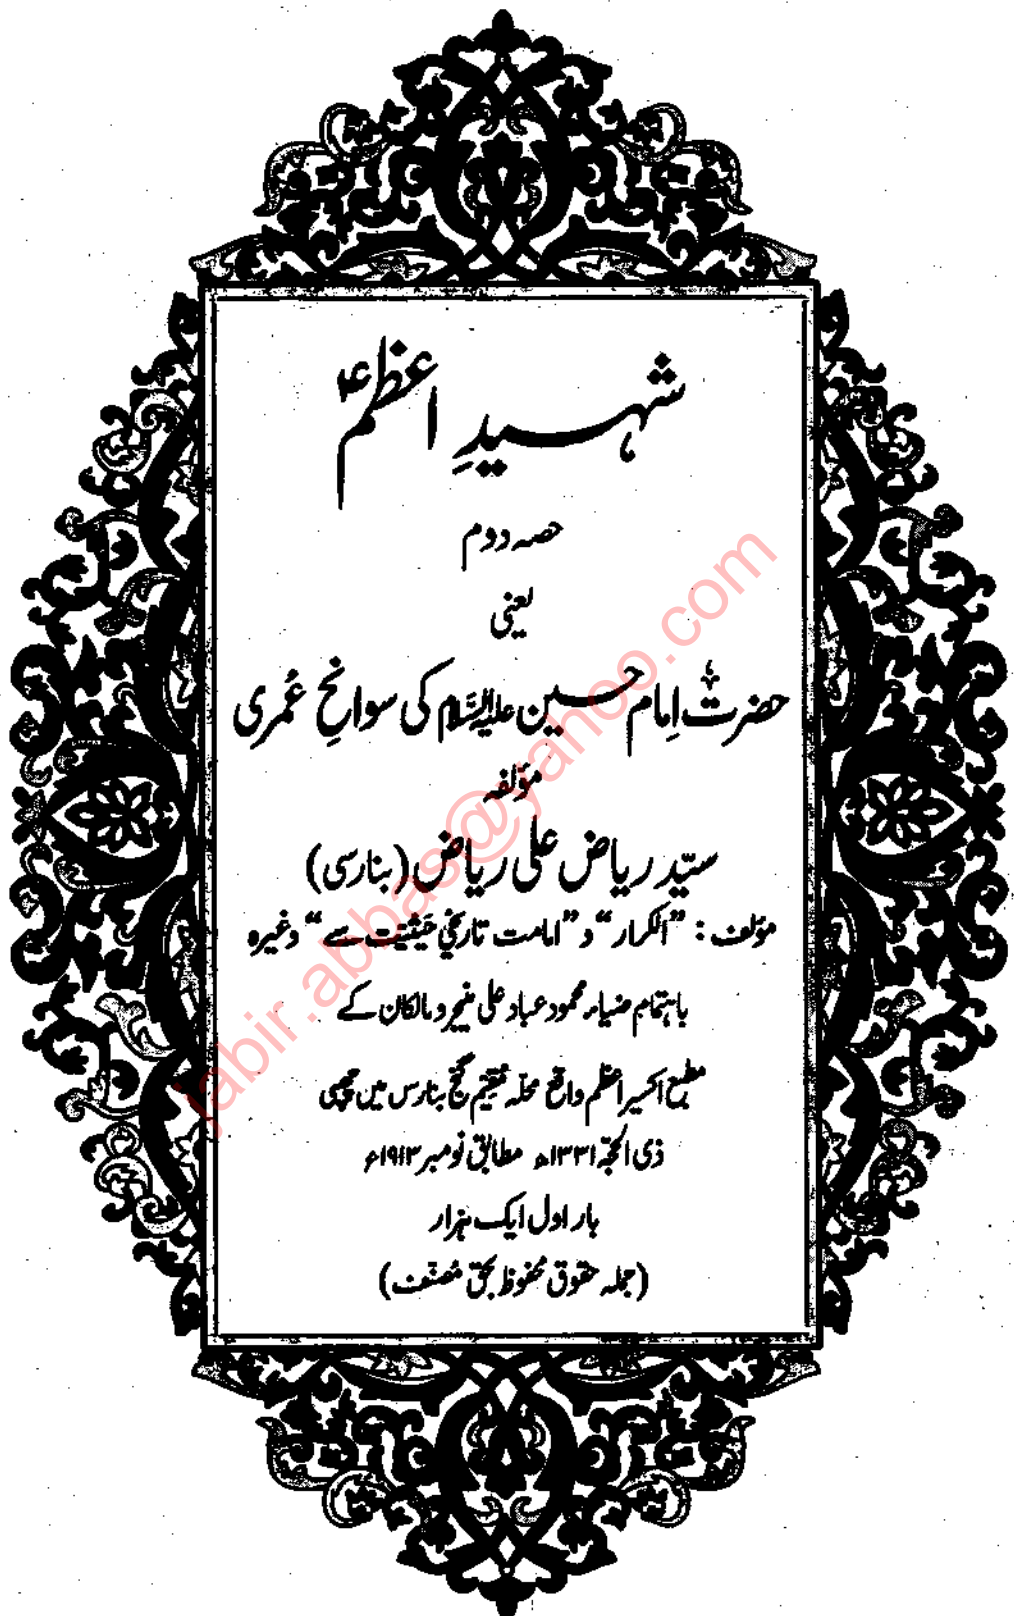 شہیدِ اعظمؑ
حصہ دوم
یعنی
حضرت اِمام حسین علیہ السَّلام کی سوانحِ عُمری
مؤلفہ
سیّد ریاض علی ریاض (بنارسی)
مؤلف : "الکرار" و "امامت تاریخی حیثیت سے" وغیرہ
باہتمام ضیاء محمود عباد علی منیجر و مالکان کے
مطبع اکسیر اعظم واقع محلہ مقیم گنج بنارس میں چھپی
ذی الحجّہ ۱۳۳۱ھ مطابق نومبر ۱۹۱۳ء
بار اول ایک ہزار
(جملہ حقوق محفوظ بحق مُصنّف)
jabir.abbas@yahoo.com